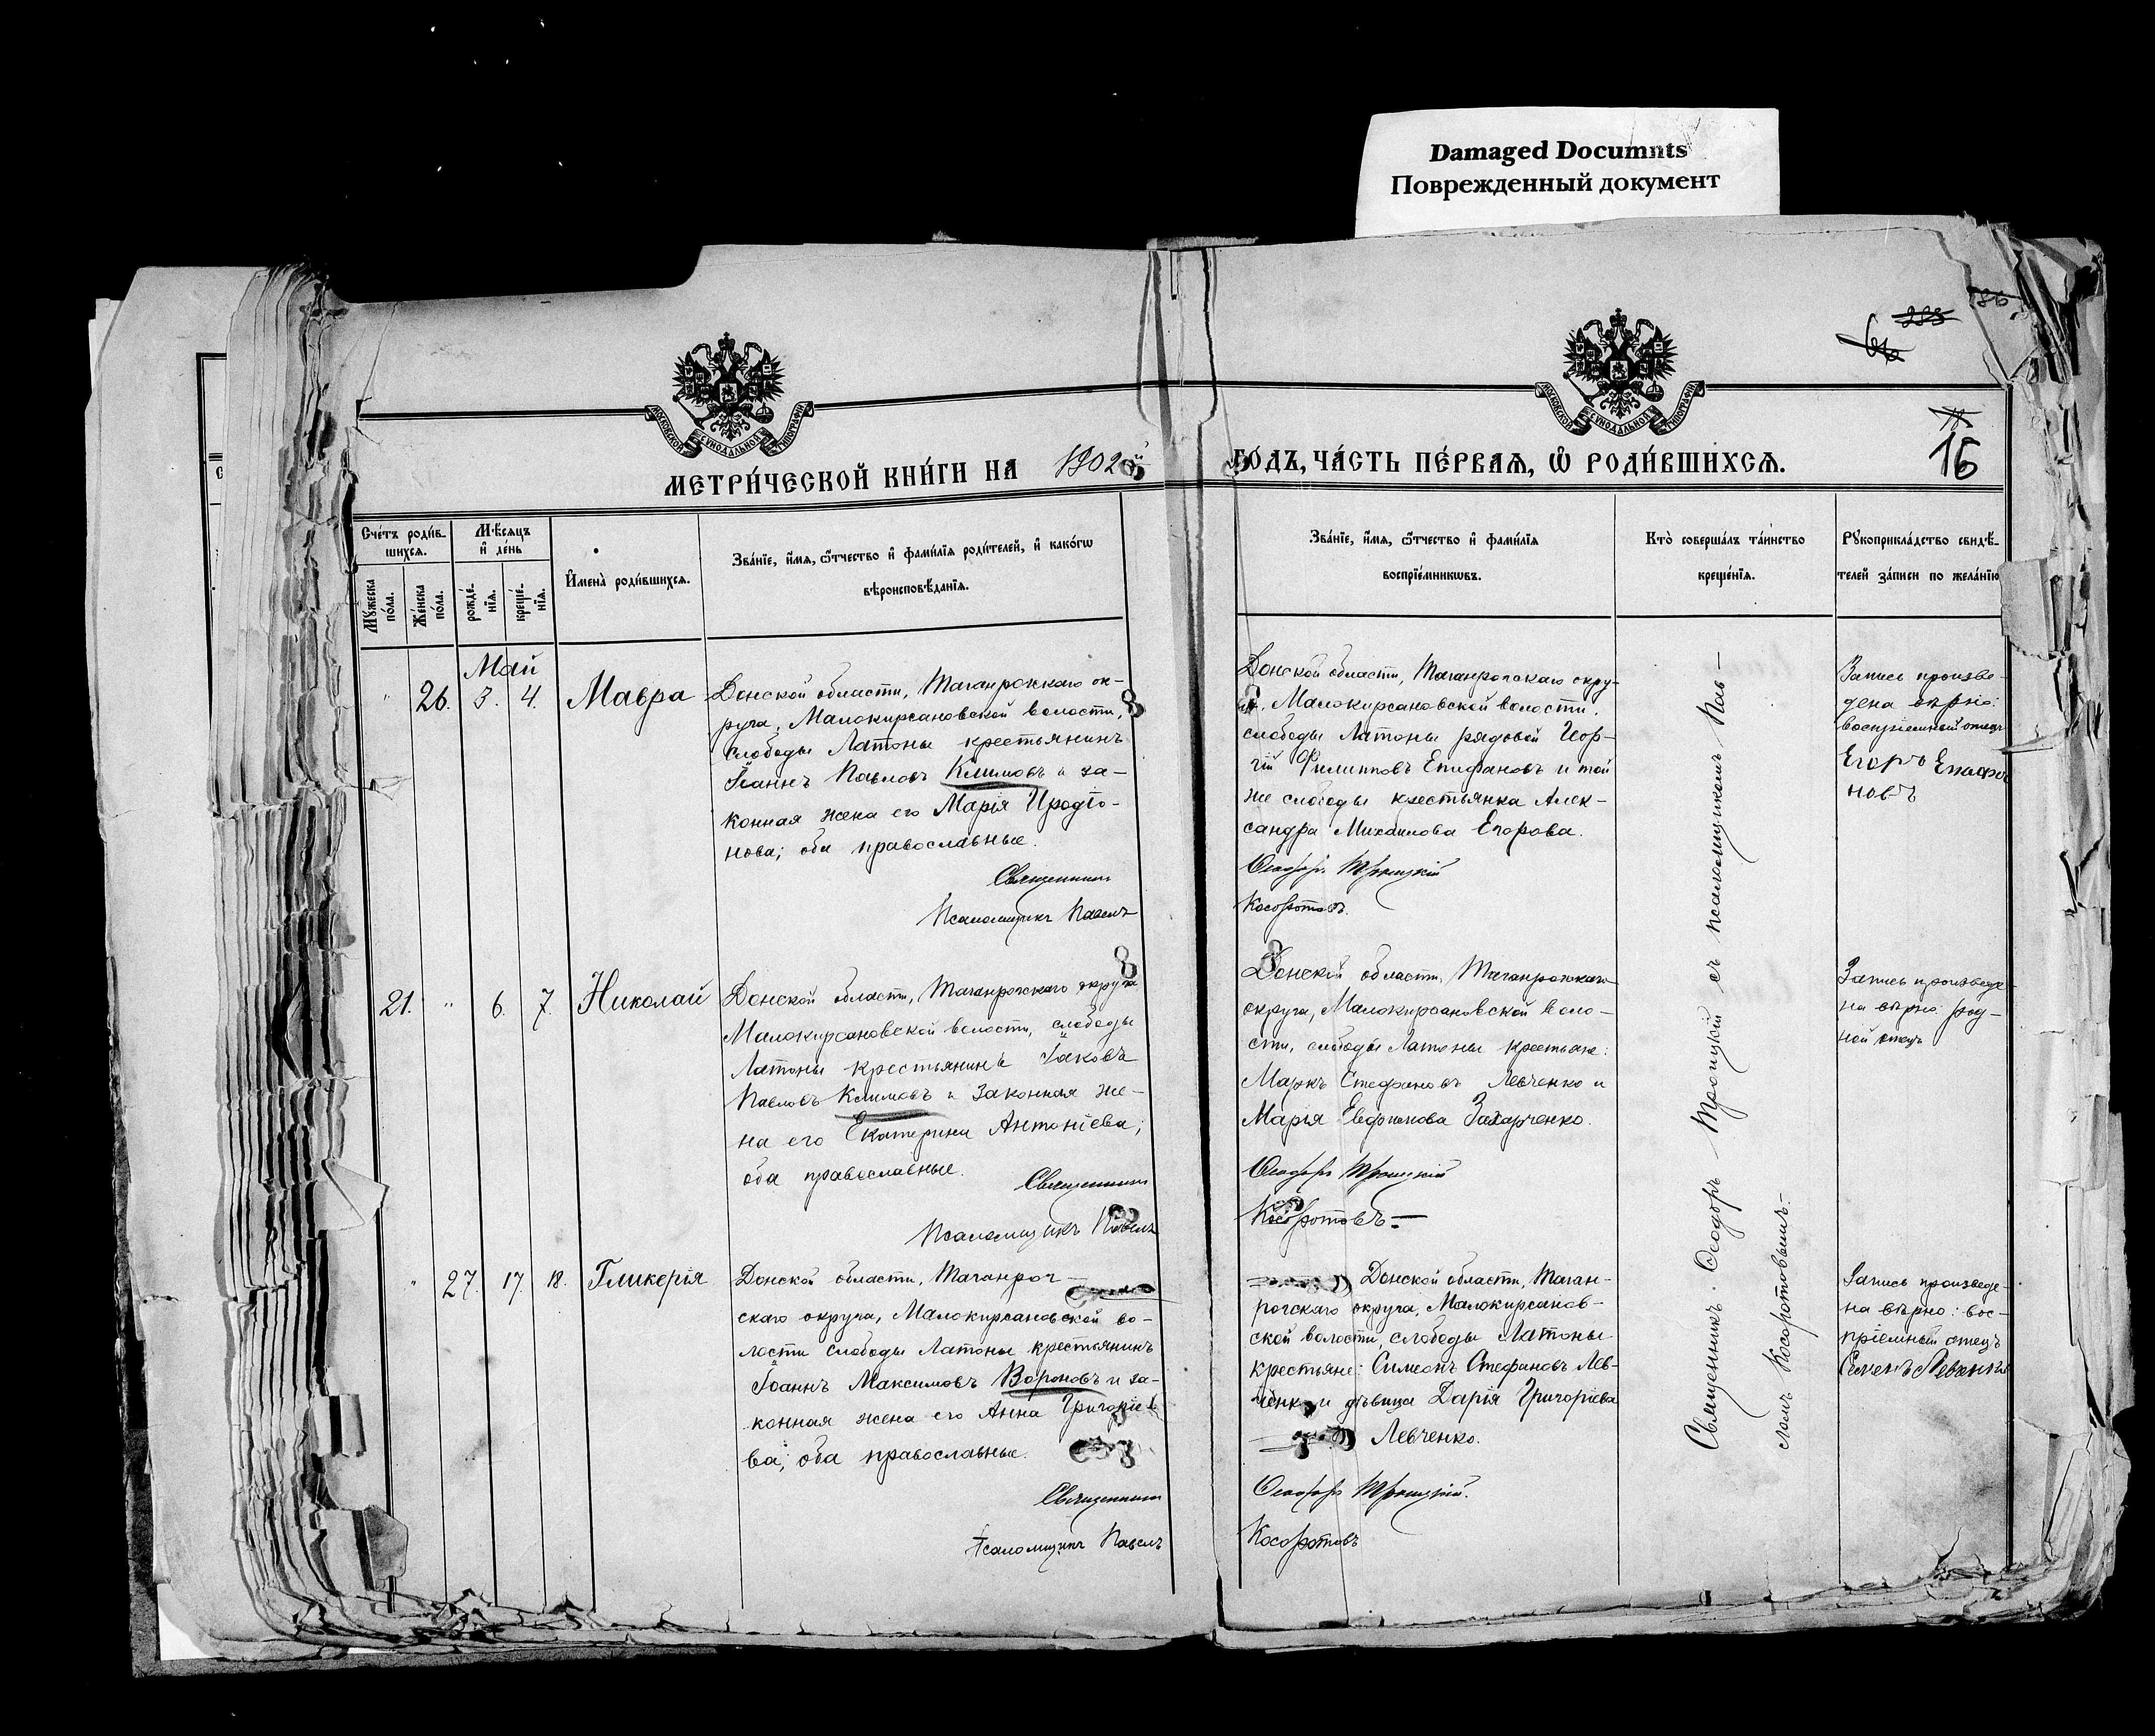 Damaged Documnts
Поврежденный документ
МОСКОВСКОЙ СѴНОДАЛЬНОЙ ТИПОГРАФІИ
МОСКОВСКОЙ СѴНОДАЛЬНОЙ ТИПОГРАФІИ
16
МЕТРИ́ЧЕСКОЙ КНИ́ГИ НА 1902й
ГОДЪ, ЧА́СТЬ ПЕ́РВАЯ, Ѡ҆ РОДИ́ВШИХСѦ.
Сче́тъ роди́в-
шихсѧ.
Мꙋ́жеска по́ла.
Же́нска по́ла.
Мѣ́сѧцъ
и҆ де́нь
рожде́-
нїѧ.
креще́-
нїѧ.
И҆мена̀ роди́вшихсѧ.
Зва́нїе, и҆́мѧ, ѻ҆́тчество и҆ фами́лїѧ роди́телей, и҆ како́гѡ
вѣроисповѣ́данїѧ.
Зва́нїе, и҆́мѧ, ѻ҆́тчество и҆ фами́лїѧ
воспрїе́мникѡвъ.
Кто̀ соверша́лъ та́инство
креще́нїѧ.
Рꙋкоприкла́дство свидѣ́-
телей за́писи по жела́нїю
Май
" 26. 3. 4. Мавра
Донской области, Таганрогскаго ок-
руга, Малокирсановской волости,
слободы Латоны крестьянинъ
Іоаннъ Павловъ Климовъ и за-
конная жена его Марія Иродіо-
нова; оба православные.
Священникъ
Псаломщикъ Павелъ
Донской области, Таганрогскаго окру-
га, Малокирсановской волости,
слободы Латоны рядовой Геор-
гій Филипповъ Епифановъ и той
же слободы крестьянка Алек-
сандра Михаилова Егорова.
Ѳеодоръ Троицкій
Косоротовъ.
Запись произве-
дена вѣрно:
воспріемный отецъ
Егоръ Епифа
новъ
21. " 6. 7. Николай
Донской области, Таганрогскаго округа
Малокирсановской волости, слободы
Латоны крестьянинъ Іаковъ
Павловъ Климовъ и законная же-
на его Екатерина Антоніева;
оба православные.
Священникъ
Псаломщикъ Павелъ
Донской области, Таганрогскаго
округа, Малокирсановской воло-
сти, слободы Латоны крестьяне:
Маркъ Стефановъ Левченко и
Марія Захарченко.
Ѳеодоръ Троицкій
Косоротовъ.
Запись произведе-
на вѣрно: род-
ной отецъ
" 27. 17. 18. Гликерія
Донской области, Таганрог-
скаго округа, Малокирсановской во-
лости слободы Латоны крестьянинъ
Іоаннъ Максимовъ Вороновъ и за-
конная жена его Анна Григоріе-
ва; оба православные.
Священникъ
Псаломщикъ Павелъ
Донской области, Таган-
рогскаго округа, Малокирсанов-
ской волости, слободы Латоны
крестьяне: Симеонъ Стефановъ Лев-
ченко и дѣвица Дарія Григоріева
Левченко.
Ѳеодоръ Троицкій.
Косоротовъ
Священникъ Ѳеодоръ Троицкій съ псаломщикомъ Пав-
ломъ Косоротовымъ.
Запись произведе-
на вѣрно: вос-
пріемный отецъ
Семенъ Левченко